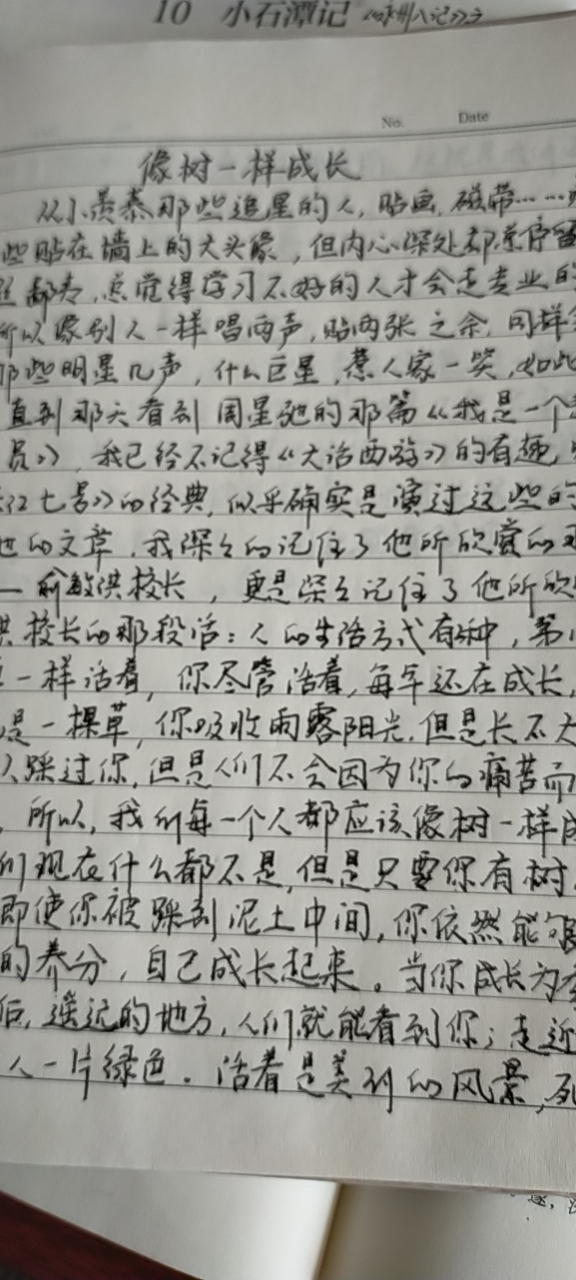 10 小石潭记 《永州八记》之
No. Date
像树一样成长
从小羡慕那些追星的人,贴画,磁带……
些贴在墙上的大头像,但内心深处都停留
鄙夷,总觉得学习不好的人才会走专业的
所以像别人一样唱两声,贴两张之余,同样
那些明星几声,什么巨星,惹人家一笑,如此
直到那天看到周星驰的那篇《我是一个
员》,我已经不记得《大话西游》的有趣,
江七号》的经典,似乎确实是演过这些的
他的文章,我深深的记住了他所欣赏的
—俞敏洪校长,更是深深记住了他所欣
洪校长的那段话:人的生活方式有两种,第
一样活着,你尽管活着,每年还在成长,
是一棵草,你吸收雨露阳光,但是长不大
人踩过你,但是人们不会因为你的痛苦而
,所以,我们每一个人都应该像树一样成
们现在什么都不是,但是只要你有树
即使你被踩到泥土中间,你依然能够
的养分,自己成长起来。当你成长为
后,遥远的地方,人们就能看到你;走近
人一片绿色。活着是美丽的风景,死